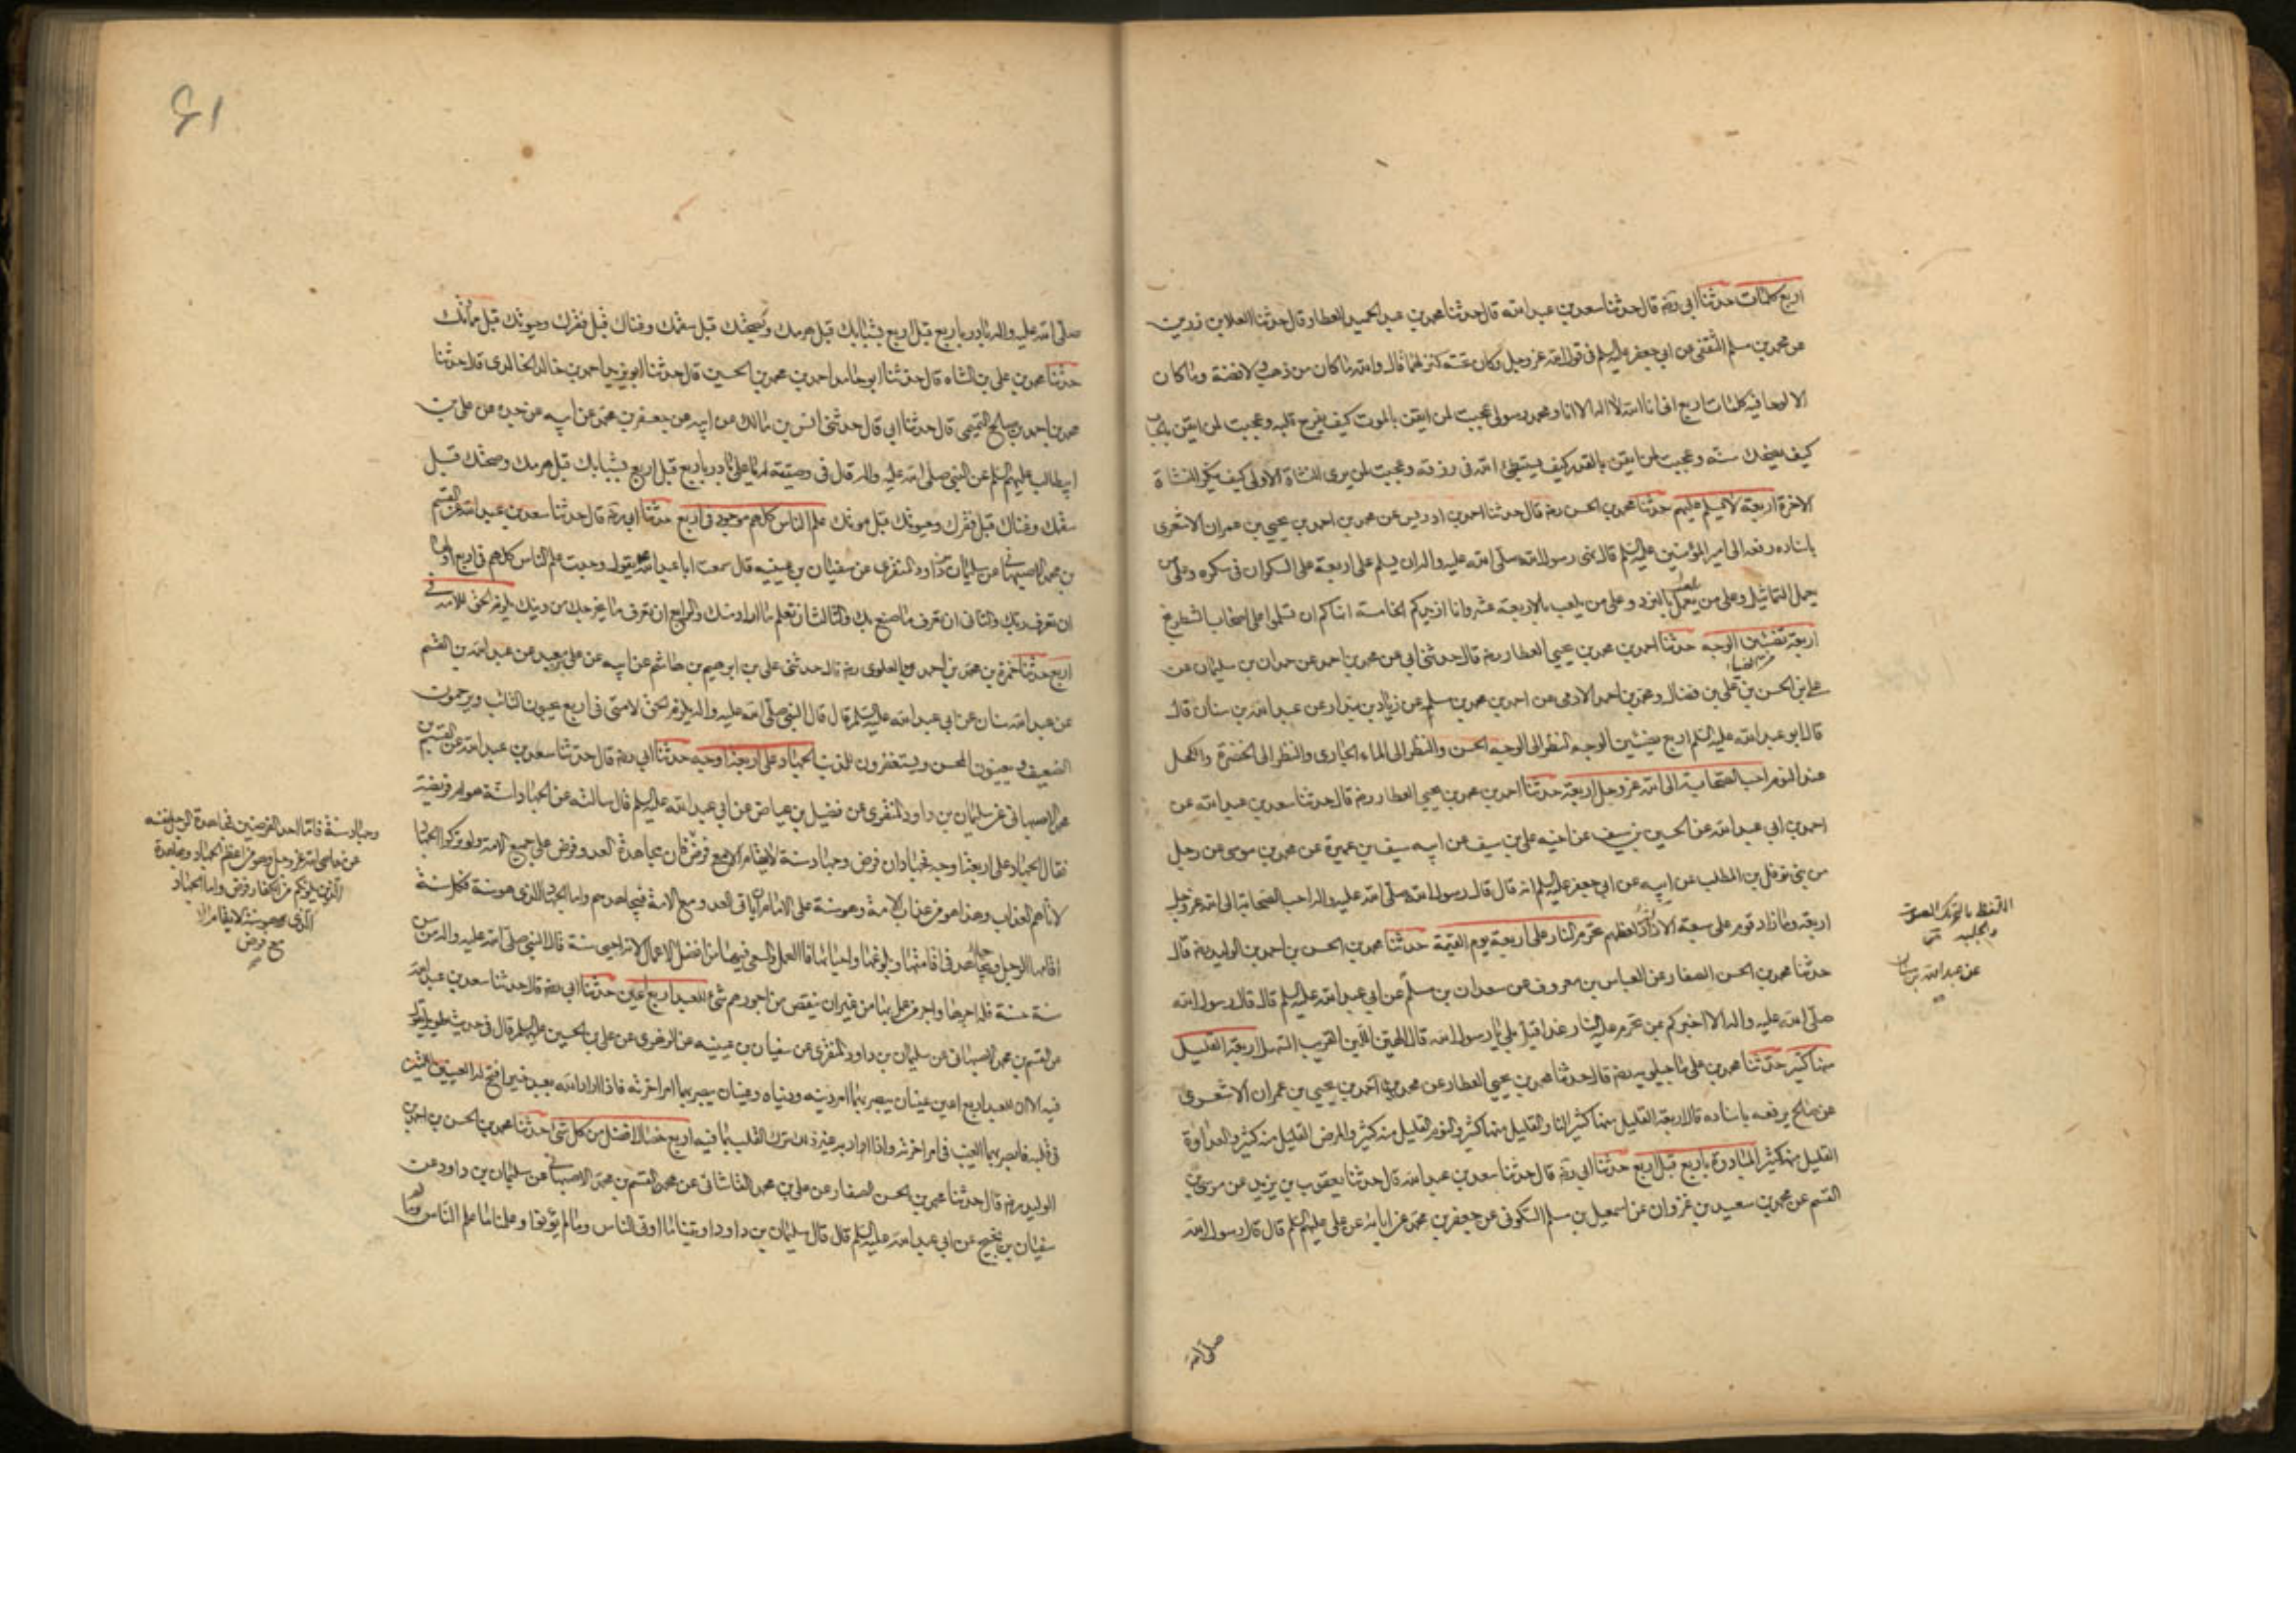 اربع كلمات حدثنا ابي رضه قال حدثنا سعد بن عبد الله قال حدثنا محمد بن عبد الحميد العطار قال حدثنا العلا بن رزين
عن محمد بن مسلم الثقفي عن ابي جعفر عليه السلم في قول الله عز وجل وكان تحته كنز لهما قال والله ما كان من ذهب ولا فضة وما كان
الا لوحا فيه كلمات اربع اني انا الله لا اله الا انا ومحمد رسولي عجبت لمن ايقن بالموت كيف يفرح قلبه وعجبت لمن ايقن بالحساب
كيف يضحك سنه وعجبت لمن ايقن بالقدر كيف يستبطئ الله في رزقه وعجبت لمن يرى النشاة الاولى كيف ينكر النشاة
الاخرة اربعة لا يسلم عليهم حدثنا محمد بن الحسن رضه قال حدثنا احمد بن ادريس عن محمد بن احمد بن يحيى بن عمران الاشعري
باسناده رفعه الى امير المؤمنين عليه السلم قال نهى رسول الله صلى الله عليه واله ان يسلم على اربعة على السكران في سكره وعلى من
يعمل التماثيل وعلى من يلعب بالنرد وعلى من يلعب بالاربعة عشر وانا ازيدكم الخامسة انهاكم ان تسلموا على اصحاب الشطرنج
اربعة يضئين الوجه حدثنا احمد بن محمد بن يحيى العطار رضه قال حدثني ابي عن محمد بن احمد عن حمدان بن سليمان عن
علي بن الحسن بن علي بن فضال ومحمد بن احمد الادمي عن احمد بن محمد بن مسلم عن زياد بن بندار عن عبد الله بن سنان قال
قال ابو عبد الله عليه السلم اربع يضئين الوجه النظر الى الوجه الحسن والنظر الى الماء الجاري والنظر الى الخضرة والكحل
عند النوم احب الصحابة الى الله عز وجل اربعة حدثنا احمد بن محمد بن يحيى العطار رضه قال حدثنا سعد بن عبد الله عن
احمد بن ابي عبد الله عن الحسين بن سيف عن اخيه علي بن سيف عن ابيه سيف بن عميرة عن محمد بن موسى عن رجل
من بني نوفل بن المطلب عن ابيه عن ابي جعفر عليه السلم انه قال قال رسول الله صلى الله عليه واله احب الصحابة الى الله عز وجل
اربعة وما زاد قوم على سبعة الا زاد لغطهم تحرم النار على اربعة يوم القيمة حدثنا محمد بن الحسن بن احمد بن الوليد رضه قال
حدثنا محمد بن الحسن الصفار عن العباس بن معروف عن سعدان بن مسلم عن ابي عبد الله عليه السلم قال قال رسول الله
صلى الله عليه واله الا اخبركم بمن تحرم عليه النار غدا قيل بلى يا رسول الله قال الهين اللين القريب السهل اربعة القليل
منها كثير حدثنا محمد بن علي ماجيلويه رضه قال حدثنا محمد بن يحيى العطار عن محمد بن احمد بن يحيى بن عمران الاشعري
عن صالح يرفعه باسناده قال اربعة القليل منها كثير النار القليل منها كثير والنوم القليل منه كثير والمرض القليل منه كثير والعداوة
القليل منها كثير المبادرة باربع قبل اربع حدثنا ابي رضه قال حدثنا سعد بن عبد الله قال حدثنا يعقوب بن يزيد عن موسى بن
القسم عن محمد بن سعيد بن غزوان عن اسمعيل بن مسلم السكوني عن جعفر بن محمد عن ابائه عن علي عليهم السلم قال قال رسول الله
صلى الله
عن عبد الله بن سنان
صلى الله عليه واله بادر باربع قبل اربع بشبابك قبل هرمك وصحتك قبل سقمك وغناك قبل فقرك وحيوتك قبل مماتك
حدثنا محمد بن علي بن الشاه قال حدثنا ابو حامد احمد بن محمد بن الحسين قال حدثنا ابو يزيد احمد بن خالد الخالدي قال حدثنا
محمد بن احمد بن صالح التميمي قال حدثنا ابي قال حدثني انس بن مالك عن ابيه عن جعفر بن محمد عن ابيه عن جده عن علي بن
ابيطالب عليهم السلم عن النبي صلى الله عليه واله قال في وصيته له يا علي بادر باربع قبل اربع بشبابك قبل هرمك وصحتك قبل
سقمك وغناك قبل فقرك وحيوتك قبل موتك علم الناس كلهم موجود في اربع حدثنا ابي رضه قال حدثنا سعد بن عبد الله عن القسم
بن محمد الاصبهاني عن سليمان بن داود المنقري عن سفيان بن عيينه قال سمعت ابا عبد الله يقول وجدت علم الناس كلهم في اربع اولها
ان تعرف ربك والثاني ان تعرف ما صنع بك والثالث ان تعلم ما اراد منك والرابع ان تعرف ما يخرجك من دينك يلزم الحق للامة في
اربع حدثنا حمزة بن محمد بن احمد العلوي رضه قال حدثني علي بن ابرهيم بن هاشم عن ابيه عن علي بن معبد عن عبد الله بن القسم
عن عبد الله سنان عن ابي عبد الله عليه السلم قال قال النبي صلى الله عليه واله يلزم الحق لامتي في اربع يحبون التائب ويرحمون
الضعيف ويعينون المحسن ويستغفرون للمذنب الجهاد على اربعة اوجه حدثنا ابي رضه قال حدثنا سعد بن عبد الله عن القسم بن
محمد الاصبهاني عن سليمان بن داود المنقري عن فضيل بن عياض عن ابي عبد الله عليه السلم قال سالته عن الجهاد اسنة هو ام فريضة
فقال الجهاد على اربعة اوجه فجهادان فرض وجهاد سنة لا يقام الا مع فرض فان مجاهدة العدو فرض على جميع الامة ولو تركوا الجهاد
لاتاهم العذاب وهذا هو من عذاب الامة وهو سنة على الامام ان ياتي العدو مع الامة فيجاهدهم واما الجهاد الذي هو سنة فكل سنة
اقامها الرجل وجاهد في اقامتها وبلوغها واحيائها فالعمل والسعي فيها من افضل الاعمال لانه احيى سنة قال النبي صلى الله عليه واله من سن
سنة حسنة فله اجرها واجر من عمل بها من غير ان ينقص من اجورهم شئ للعبد اربع اعين حدثنا ابي رضه قال حدثنا سعد بن عبد الله
عن القسم بن محمد الاصبهاني عن سليمان بن داود المنقري عن سفيان بن عيينه عن الزهري عن علي بن الحسين عليه السلم قال في حديث طويل يقول
فيه الا ان للعبد اربع اعين عينان يبصر بهما امر دينه ودنياه وعينان يبصر بهما امر اخرته فاذا اراد الله بعبد خيرا فتح له العينين اللتين
في قلبه فابصر بهما الغيب في امر اخرته واذا اراد به غير ذلك ترك القلب بما فيه اربع خصال افضل من كل شئ حدثنا محمد بن الحسن بن احمد بن
الوليد رضه قال حدثنا محمد بن الحسن الصفار عن علي بن محمد القاشاني عن محمد القسم بن محمد الاصبهاني عن سليمان بن داود عن
سفيان بن نجيح عن ابي عبد الله عليه السلم قال قال سليمان بن داود اوتينا ما اوتي الناس وما لم يؤتوا وعلمنا ما علم الناس وما لم
وجهاد سنة فاما احد الفرضين فمجاهدة الرجل نفسه
عن معاصي الله عز وجل وهو من اعظم الجهاد ومجاهدة
الذين يلونكم من الكفار فرض واما الجهاد
الذي هو سنة لا يقام الا
مع فرض